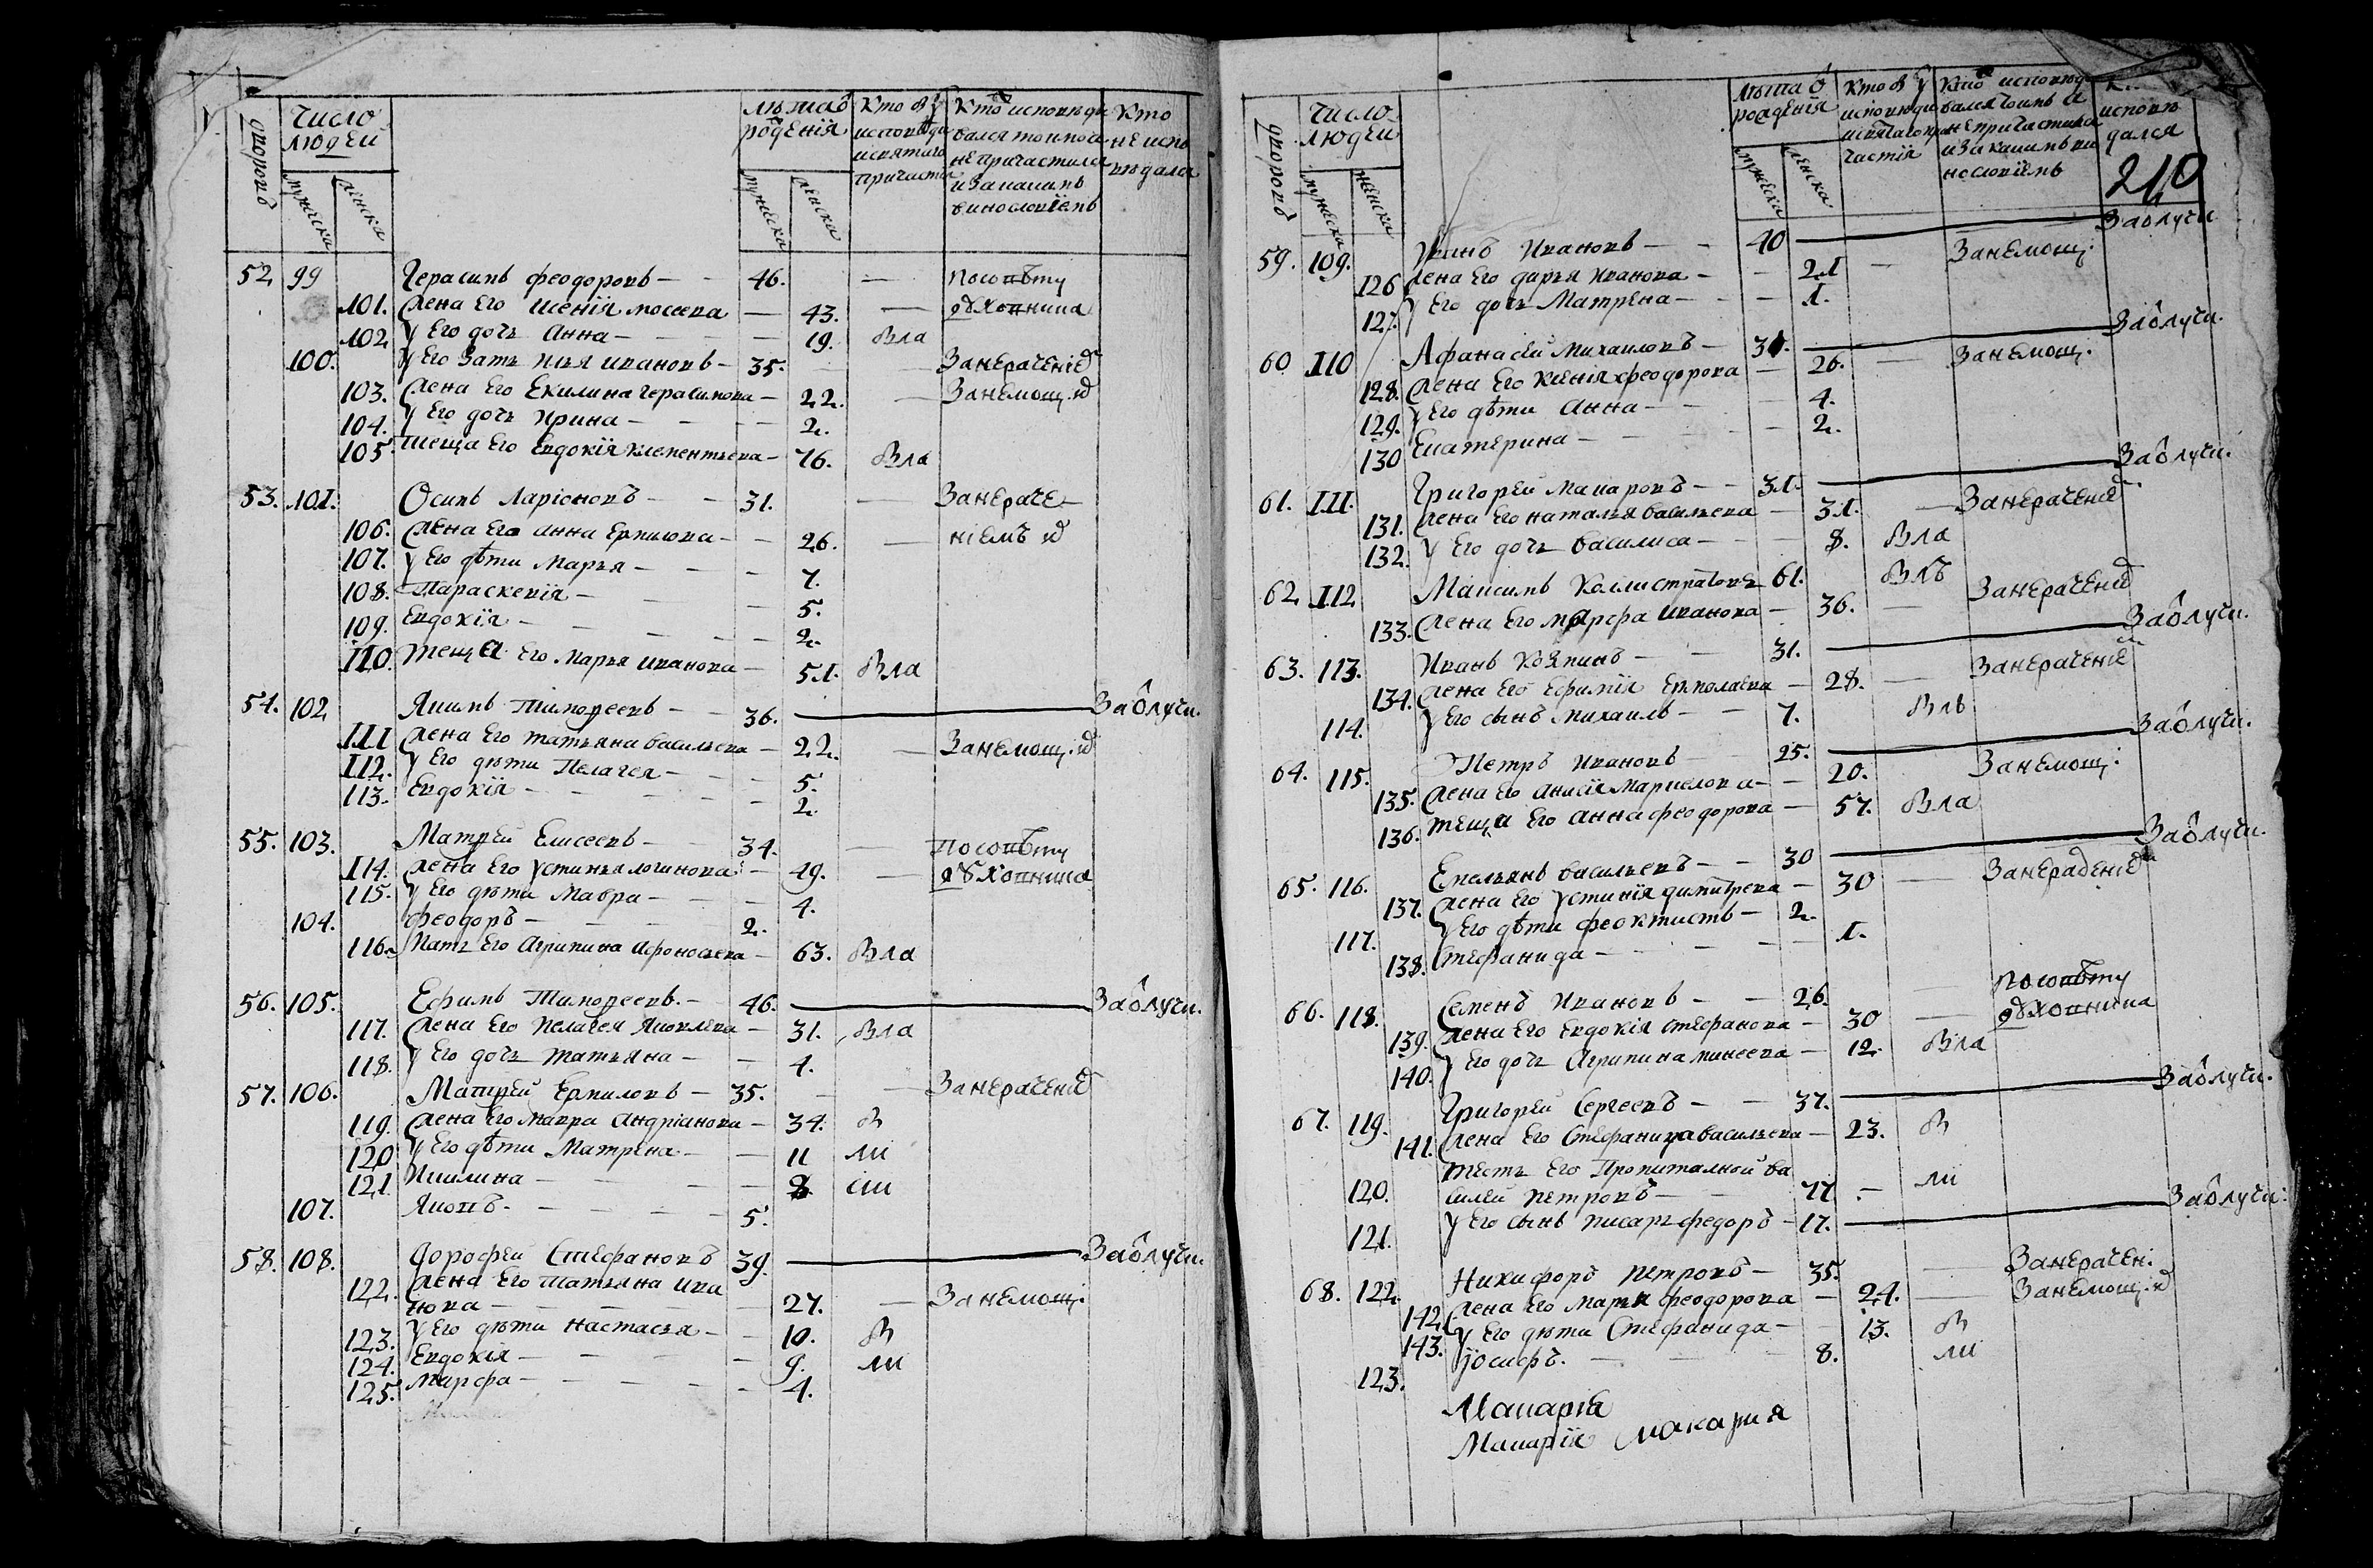 дворовъ
Число людей
мужеска
женска
лѣта ѿ рожденія
мужеска
женска
Кто былъ у исповѣди и святаго причастія
Кто исповѣдывался токмо а не причастился и за какимъ винословіемъ
Кто не исповѣдался
52 99 Герасимъ Феодоровъ — 46. — По совѣту
101. Жена Его Ксенія Мосеева — 43. — дховника
102 У Его дочь Анна — 19. Была
100. У Его Зять Илья Ивановъ — 35. — Занерачениѣ
103. Жена Его Екилина Герасимова — 22. — Занемощ.
104. У Его дочь Ирина — 2.
105. теща Его Евдокія Клементьева — 76. Была
53. 101. Осипъ Ларіоновъ — 31. — Занераче
106. Жена Его Анна Ермилова — 26. — ніемъ
107. У Его дѣти Марья — 7.
108. Параскевія — 5.
109. Евдокія — 2.
110. теща Его Марья Иванова — 51. Была
54. 102 Якимъ Тимофеевъ — 36. — За отлучк.
111 Жена Его Татьяна Васильева — 22. — Занемощ.
112. У Его дѣти Пелагея — 5.
113. Евдокія — 2.
55. 103. Матфей Елисеевъ — 34. — По совѣту
114. Жена Его Устинья Логинова — 49. — дховника
115. У Его дѣти Мавра — 4.
104. Феодоръ — 2.
116. Мать Его Агрипина Афонасьева — 63. Была
56. 105. Ефимъ Тимофеевъ — 46. — За отлучк.
117. Жена Его Пелагея Яковлева — 31. Была
118. У Его дочь Татьяна — 4.
57. 106. Матфей Ермиловъ — 35. — Занерачениѣ
119. Жена Его Мавра Андріанова — 34. Б
120 У Его дѣти Матрена — 11 ли
121. Акилина — 8.
107. Яковъ — 5.
58. 108. Дорофей Стефановъ 39. — За отлучк.
122. Жена Его Татьяна Ива
нова — 27. — Занемощ:
123. У Его дѣти Настасья — 10. Бы
124. Евдокія — 9. ли
125. Марфа — 4.
дворовъ
Число людей
мужеска
женска
лѣта ѿ рожденія
мужеска
женска
Кто былъ у исповѣди и святаго причастія
Кто исповѣдывался токмо а не причастился и за какимъ винословіемъ
исповѣдался
210
59. 109. Ивановъ — 40 — За отлучк
126 Жена Его Дарья Иванова — 21 — Занемощ:
127. У Его дочь Матрена — 1.
60 110 Афанасей Михаиловъ — 31. — За отлучк.
128. Жена Его Ксенія Феодорова — 26. — Занемощ.
129. У Его дѣти Анна — 4.
130 Екатерина — 2.
61. 111. Григорей Макаровъ — 31. — За отлучк.
131. Жена Его Наталья Васильева — 31. — Занерачениѣ
132. У Его дочь Василиса — 8. Была
62 112 Максимъ Каллистратовъ 61. Былъ
133. Жена Его Марфа Иванова — 36. — Занерачениѣ
63. 113. Иванъ — 31. — За отлучк.
134. Жена Его Ефимія Ермолаева — 28. — Занерачениѣ
114. У Его сынъ Михаилъ — 7. Былъ
64. 115. Петръ Ивановъ — 25. — За отлучк.
135. Жена Его Анисія Маркелова — 20. Занемощ:
136. теща Его Анна Феодорова — 57. Была
65. 116. Емельянъ Васильевъ — 30 — За отлучк.
137. Жена Его Устинія Димитрева — 30 — Занерадениѣ
117. У Его дѣти Феоктистъ — 2.
138. Стефанида — 1.
66. 118. Семенъ Ивановъ — 26. — По совѣту
139. Жена Его Евдокія Стефанова — 30 — дховника
140. У Его дочь Агрипина Минеева — 12. Была
67. 119. Григорей Сергеевъ — 37. — За отлучк.
141. Жена Его Стефанида Васильева — 23. Бы
тесть Его Пропиталной Ва
120. силей Петровъ — 77 — ли
121. У Его сынъ писарь Федоръ — 17. — За отлучк:
68. 122. Никифоръ Петровъ — 35. — Занерачен:
142. Жена Его Марья Феодорова — 24. — Занемощ.
143. У Его дѣти Стефанида — 13. Бы
123. Іосифъ. — 8. ли
Макарія
Макарія макария